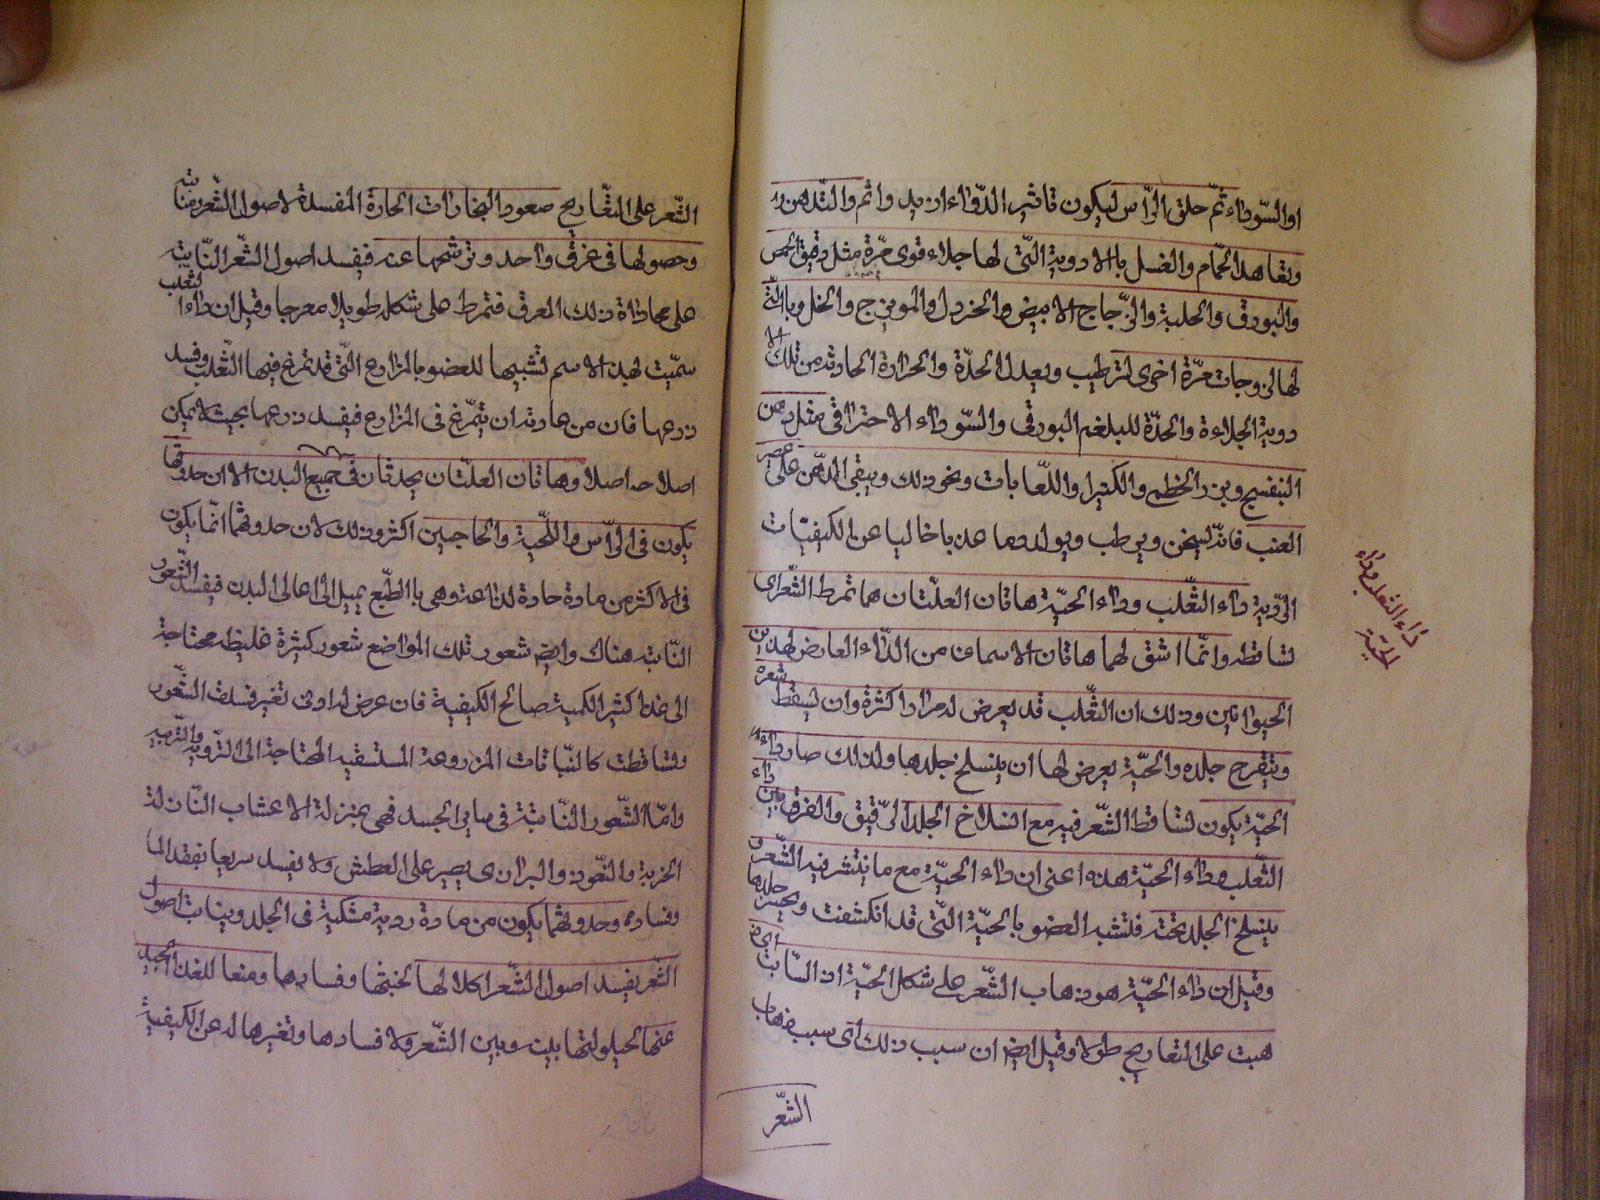 او السّوداء ثمّ حلق الرّأس ليكون تاثير الدّواء ازيد واتم والتّدهين
وتعاهد الحمّام والغسل بالادوية الّتى لها جلاء قوى مرّة مثل دقيق الحمص
والبورق والحلبة والزّجاج الابيض والخردل والمويزج والخل وبالّتى
لها لزوجات مرّة اخرى لترطيب ويعدل الحدّة والحرارة الحادثه من تلك الا
دوية الجلاءة والحدّة للبلغم البورقى والسّوداء الاحتراقى مثل دهن
البنفسج وبزر الخطمى والكثيرا واللّعابات ونحو ذلك ويبقى الدّهن على عصير
العنب فانّه ليسخن ويرطب ويولد دما عذبا خاليا عن الكيفيّات
الرّدية داء الثّعلب وداء الحيّة هاتان العلّتان هما تمرط الشّعر اى
تساقطه وانّما اشتق لهما هاتان الاسمان من الدّاء العارض لهذين
الحيوانين وذلك ان الثّعلب قد يعرض له مرارا كثرة وان ليسقط شعره
ويتقرح جلده والحيّة يعرض لها ان ينسلخ جلدها ولذلك صار داء
الحيّة يكون تساقط الشّعر فيه مع انسلاخ الجلد الرّقيق والفرق بين داء
الثّعلب وداء الحيّة هذه اعنى ان داء الحيّة مع ما ينتشر فيه الشّعر و
ينسلخ الجلد تحته فتشبه العضو بالحيّة الّتى قد انكشفت جلدها
وقيل ان داء الحيّة هو ذهاب الشّعر على شكل الحيّة اى
هبت على التعاريج طولا وقيل ايضا ان سبب ذلك اى سبب ذهاب
الشّعر
داء الثعلب وداء
الحيّة
الشّعر على التعّاريج صعود البخارات الحارة المفسدة لاصول الشّعر
وحصولها فى عرق واحد وترشحها عنه فيفسد اصول الشّعر النّابتة
على محاذاة ذلك العرق فتمرط على شكله طويلا معرجا وقيل ان داء الثعلب
سمّيت لهذه الاسم تشبيها للعضو بالمزارع الّتى قد تمرغ فيها الثّعلب وفسد
زرعها فان من عادته ان يتمرّغ فى المزارع فيفسد زرعها بحيث لا يمكن
اصلاحه اصلا وهاتان العلّتان يحدثان فى جميع البدن الا ان حدوثها
يكون فى الرّأس واللّحية والحاجبين اكثر وذلك لان حدوثهما انّما يكون
فى الاكثر من مادة حادة لذاعة وهى بالطّبع يميل الى اعالى البدن فيفسد الشّعور
النّابته هناك وايضا شعور تلك المواضع شعور كثيرة غليظه محتاجة
الى غذا كثير الكمية صالح الكيفية فان عرض له ادنى تغير فسدت الشّعور
وتساقطت كالنّباتات المزروعة المستسقيه المحتاجة الى التّروية والتّربية
وامّا الشّعور النّابتة فى ساير الجسد فهى بمنزلة الاعشاب النّازلة
يصبر على العطش ولا يفسد سريعا بفقد الما
وفساده وحدوثهما يكون من مادة ردية متكية فى الجلد ومنابت اصول
الشّعر يفسد اصول الشّعر اكلا لها لخبثها وفسادها ومنعا للغذا الجيد
عنها لحيلولتها بينه وبين الشّعر ولا فسادها وتغيرها له عن الكيفية